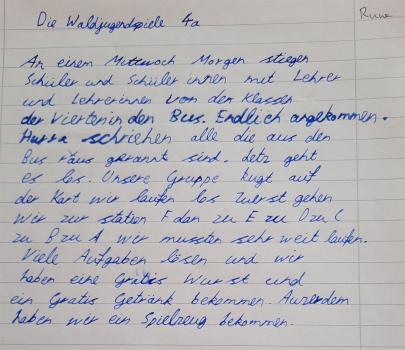 Die Waldjugendspiele 4a
Rune
An einem Mittwoch Morgen stiegen
Schüler und Schüler innen mit Lehrer
und Lehrerinnen von den Klassen
der Vierten in den Bus. Endlich angekommen.
Hurra schriehen alle die aus den
Bus raus gerannt sind. Jetz geht
es los. Unsere Gruppe kugt auf
der Kart wir laufen los Zuerst gehen
wir zur station F dan zu E zu D zu C
zu B zu A wir mussten sehr weit laufen.
Viele Aufgaben lösen und wir
haben eine Gratis Wurst und
ein Gratis Getränk bekommen. Auzerdem
haben wir ein Spielzeug bekommen.